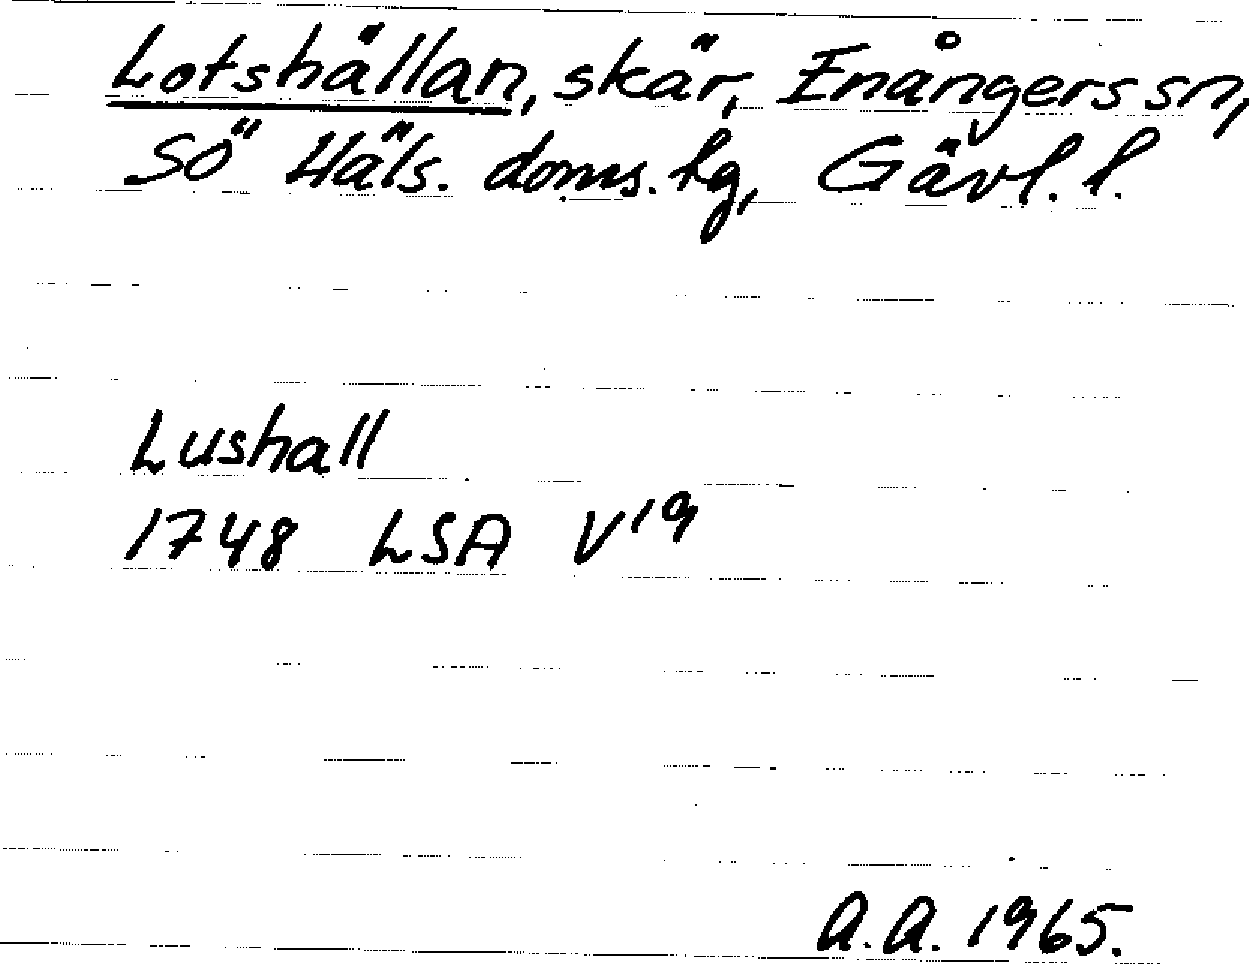 Lotshällan, skär, Enångers sn,
Sö Häls. doms. hg, Gävl. l.
Lushall
1748 LSA V19
A.A. 1965.